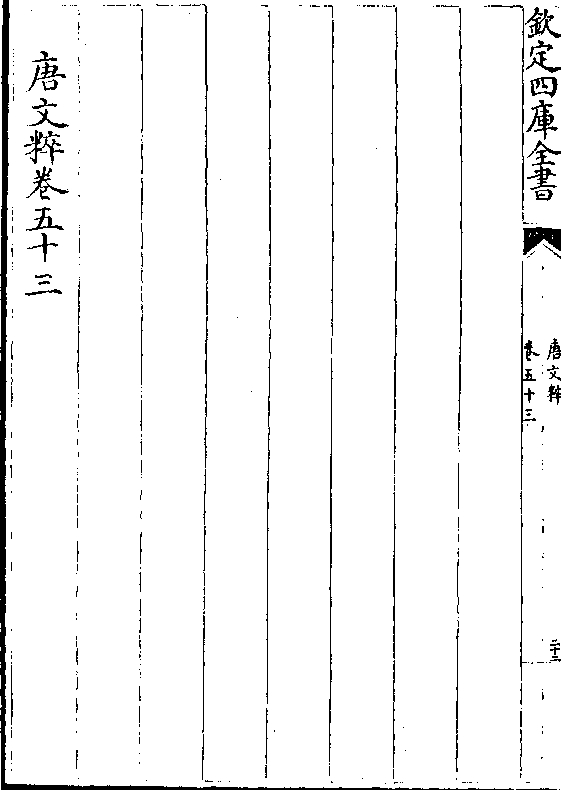 欽定四庫全書
唐文粹
卷五十三
二十二
唐文粹卷五十三